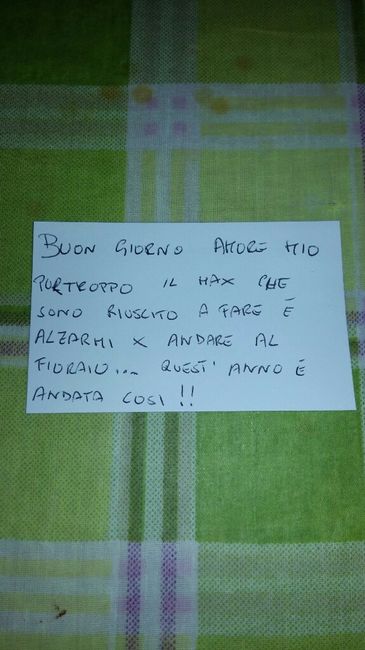 BUON GIORNO AMORE MIO
PURTROPPO IL MAX CHE
SONO RIUSCITO A FARE È
ALZARMI X ANDARE AL
FIORAIO... QUEST' ANNO È
ANDATA COSI !!